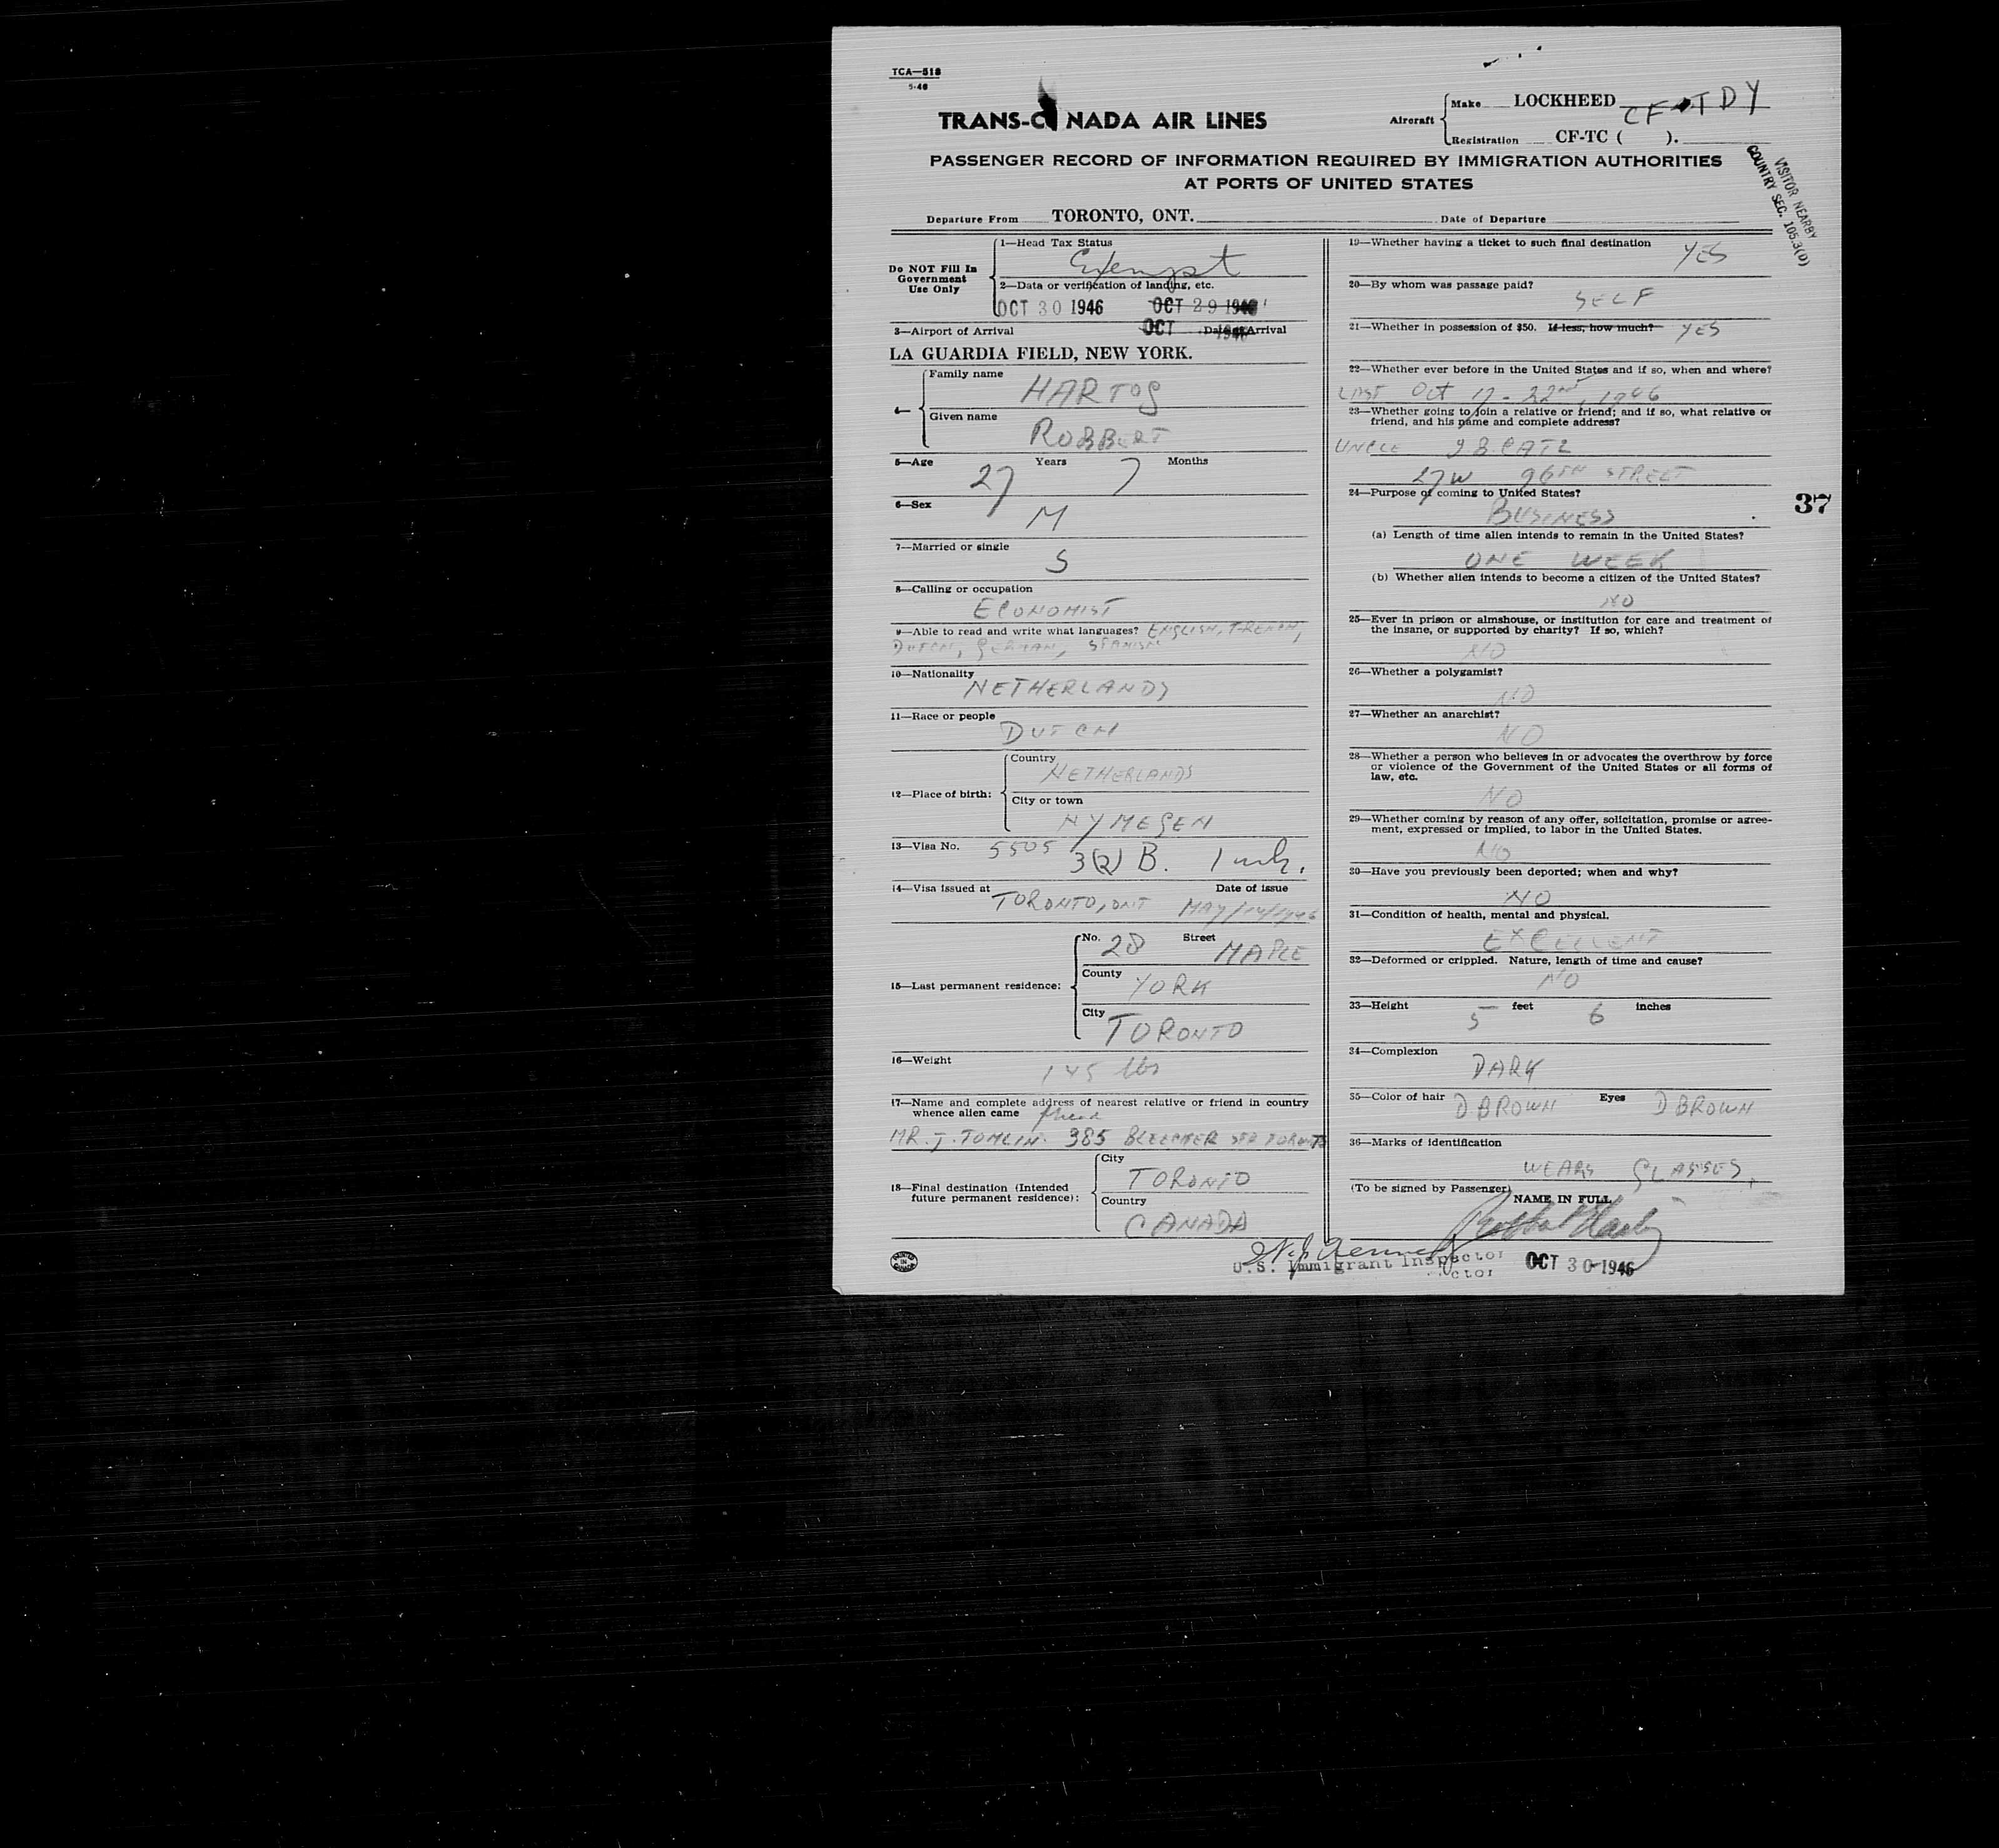 TCA—518
5-46
TRANS-C NADA AIR LINES
Aircraft
Make LOCKHEED CF-TDY
Registration CF-TC ( ).
PASSENGER RECORD OF INFORMATION REQUIRED BY IMMIGRATION AUTHORITIES
AT PORTS OF UNITED STATES
VISITOR NEARBY
COUNTRY SEC. 105.3(D)
Departure From TORONTO, ONT. Date of Departure
Do NOT Fill In
Government
Use Only
1—Head Tax Status
Exempt
2—Data or verification of landing, etc.
OCT 30 1946 OCT 29 1946
3—Airport of Arrival OCT 1946 Date of Arrival
LA GUARDIA FIELD, NEW YORK.
4—
Family name
HARTOG
Given name
ROBBERT
5—Age 27 Years 7 Months
6—Sex
M
7—Married or single
S
8—Calling or occupation
ECONOMIST
9—Able to read and write what languages? ENGLISH, FRENCH,
DUTCH, GERMAN, SPANISH
10—Nationality
NETHERLANDS
11—Race or people
DUTCH
12—Place of birth:
Country
NETHERLANDS
City or town
NYMEGEN
13—Visa No. 5505 3(2) B. 1 wk.
14—Visa issued at Date of issue
TORONTO, ONT MAY/14/1946
15—Last permanent residence:
No. 28 Street MAPLE
County
YORK
City
TORONTO
16—Weight
145 lbs
17—Name and complete address of nearest relative or friend in country
whence alien came friend
MR. J. TOMLIN. 385 BLEECKER STR TORONTO
18—Final destination (Intended
future permanent residence):
City
TORONTO
Country
CANADA
19—Whether having a ticket to such final destination
YES
20—By whom was passage paid?
SELF
21—Whether in possession of $50. If less, how much? YES
22—Whether ever before in the United States and if so, when and where?
LAST Oct 17 - 22nd, 1946
23—Whether going to join a relative or friend; and if so, what relative or
friend, and his name and complete address?
UNCLE J B. CATZ
27 W 96TH STREET
24—Purpose of coming to United States?
BUSINESS
37
(a) Length of time alien intends to remain in the United States?
ONE WEEK
(b) Whether alien intends to become a citizen of the United States?
NO
25—Ever in prison or almshouse, or institution for care and treatment of
the insane, or supported by charity? If so, which?
NO
26—Whether a polygamist?
NO
27—Whether an anarchist?
NO
28—Whether a person who believes in or advocates the overthrow by force
or violence of the Government of the United States or all forms of
law, etc.
NO
29—Whether coming by reason of any offer, solicitation, promise or agree-
ment, expressed or implied, to labor in the United States.
NO
30—Have you previously been deported; when and why?
NO
31—Condition of health, mental and physical.
EXCELLENT
32—Deformed or crippled. Nature, length of time and cause?
NO
33—Height 5 feet 6 inches
34—Complexion
DARK
35—Color of hair D BROWN Eyes D BROWN
36—Marks of identification
WEARS GLASSES
(To be signed by Passenger)
NAME IN FULL
Robbert Hartog
U.S. Immigrant Inspector OCT 30 1946